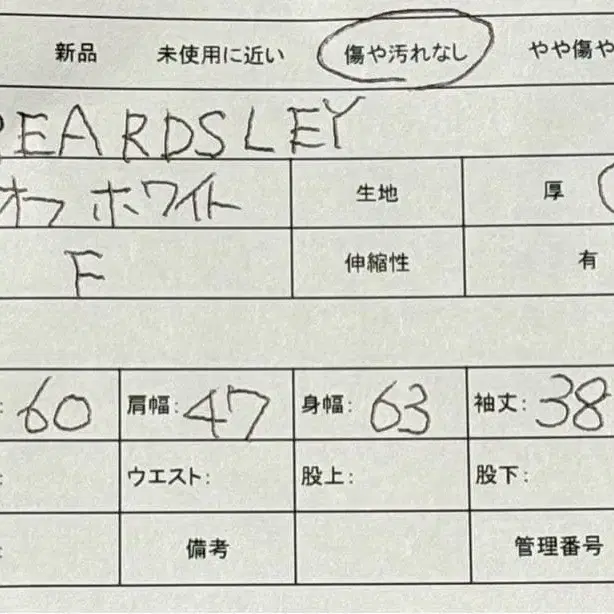 新品 未使用に近い 傷や汚れなし やや傷や
BEARDSLEY
オフホワイト 生地 厚
F 伸縮性 有
: 60 肩幅: 47 身幅: 63 袖丈: 38
: ウエスト: 股上: 股下:
: 備考 管理番号